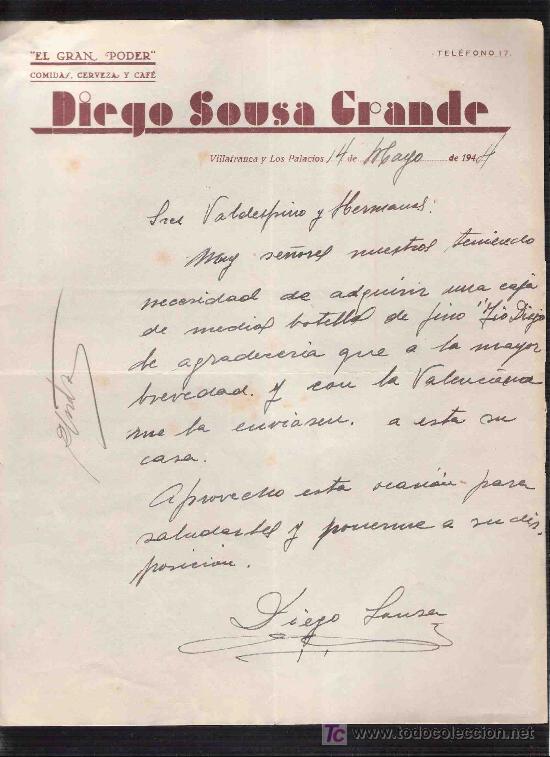 "EL GRAN PODER"
COMIDAS, CERVEZA Y CAFÉ
TELÉFONO 17.
Diego Sousa Grande
Villafranca y Los Palacios 14 de Mayo de 1944
Sres Valdespino y Hermanos:
Muy señores nuestros teniendo
necesidad de adquirir una caja
de medias botellas de fino "Tio Diego
le agradeceria que a la mayor
brevedad. y con la Valenciana
me la enviasen. a esta su
casa.
Aprovecho esta ocasión para
saludarles y ponerme a su dis
posición.
Diego Sousa
todocoleccion
www.todocoleccion.net